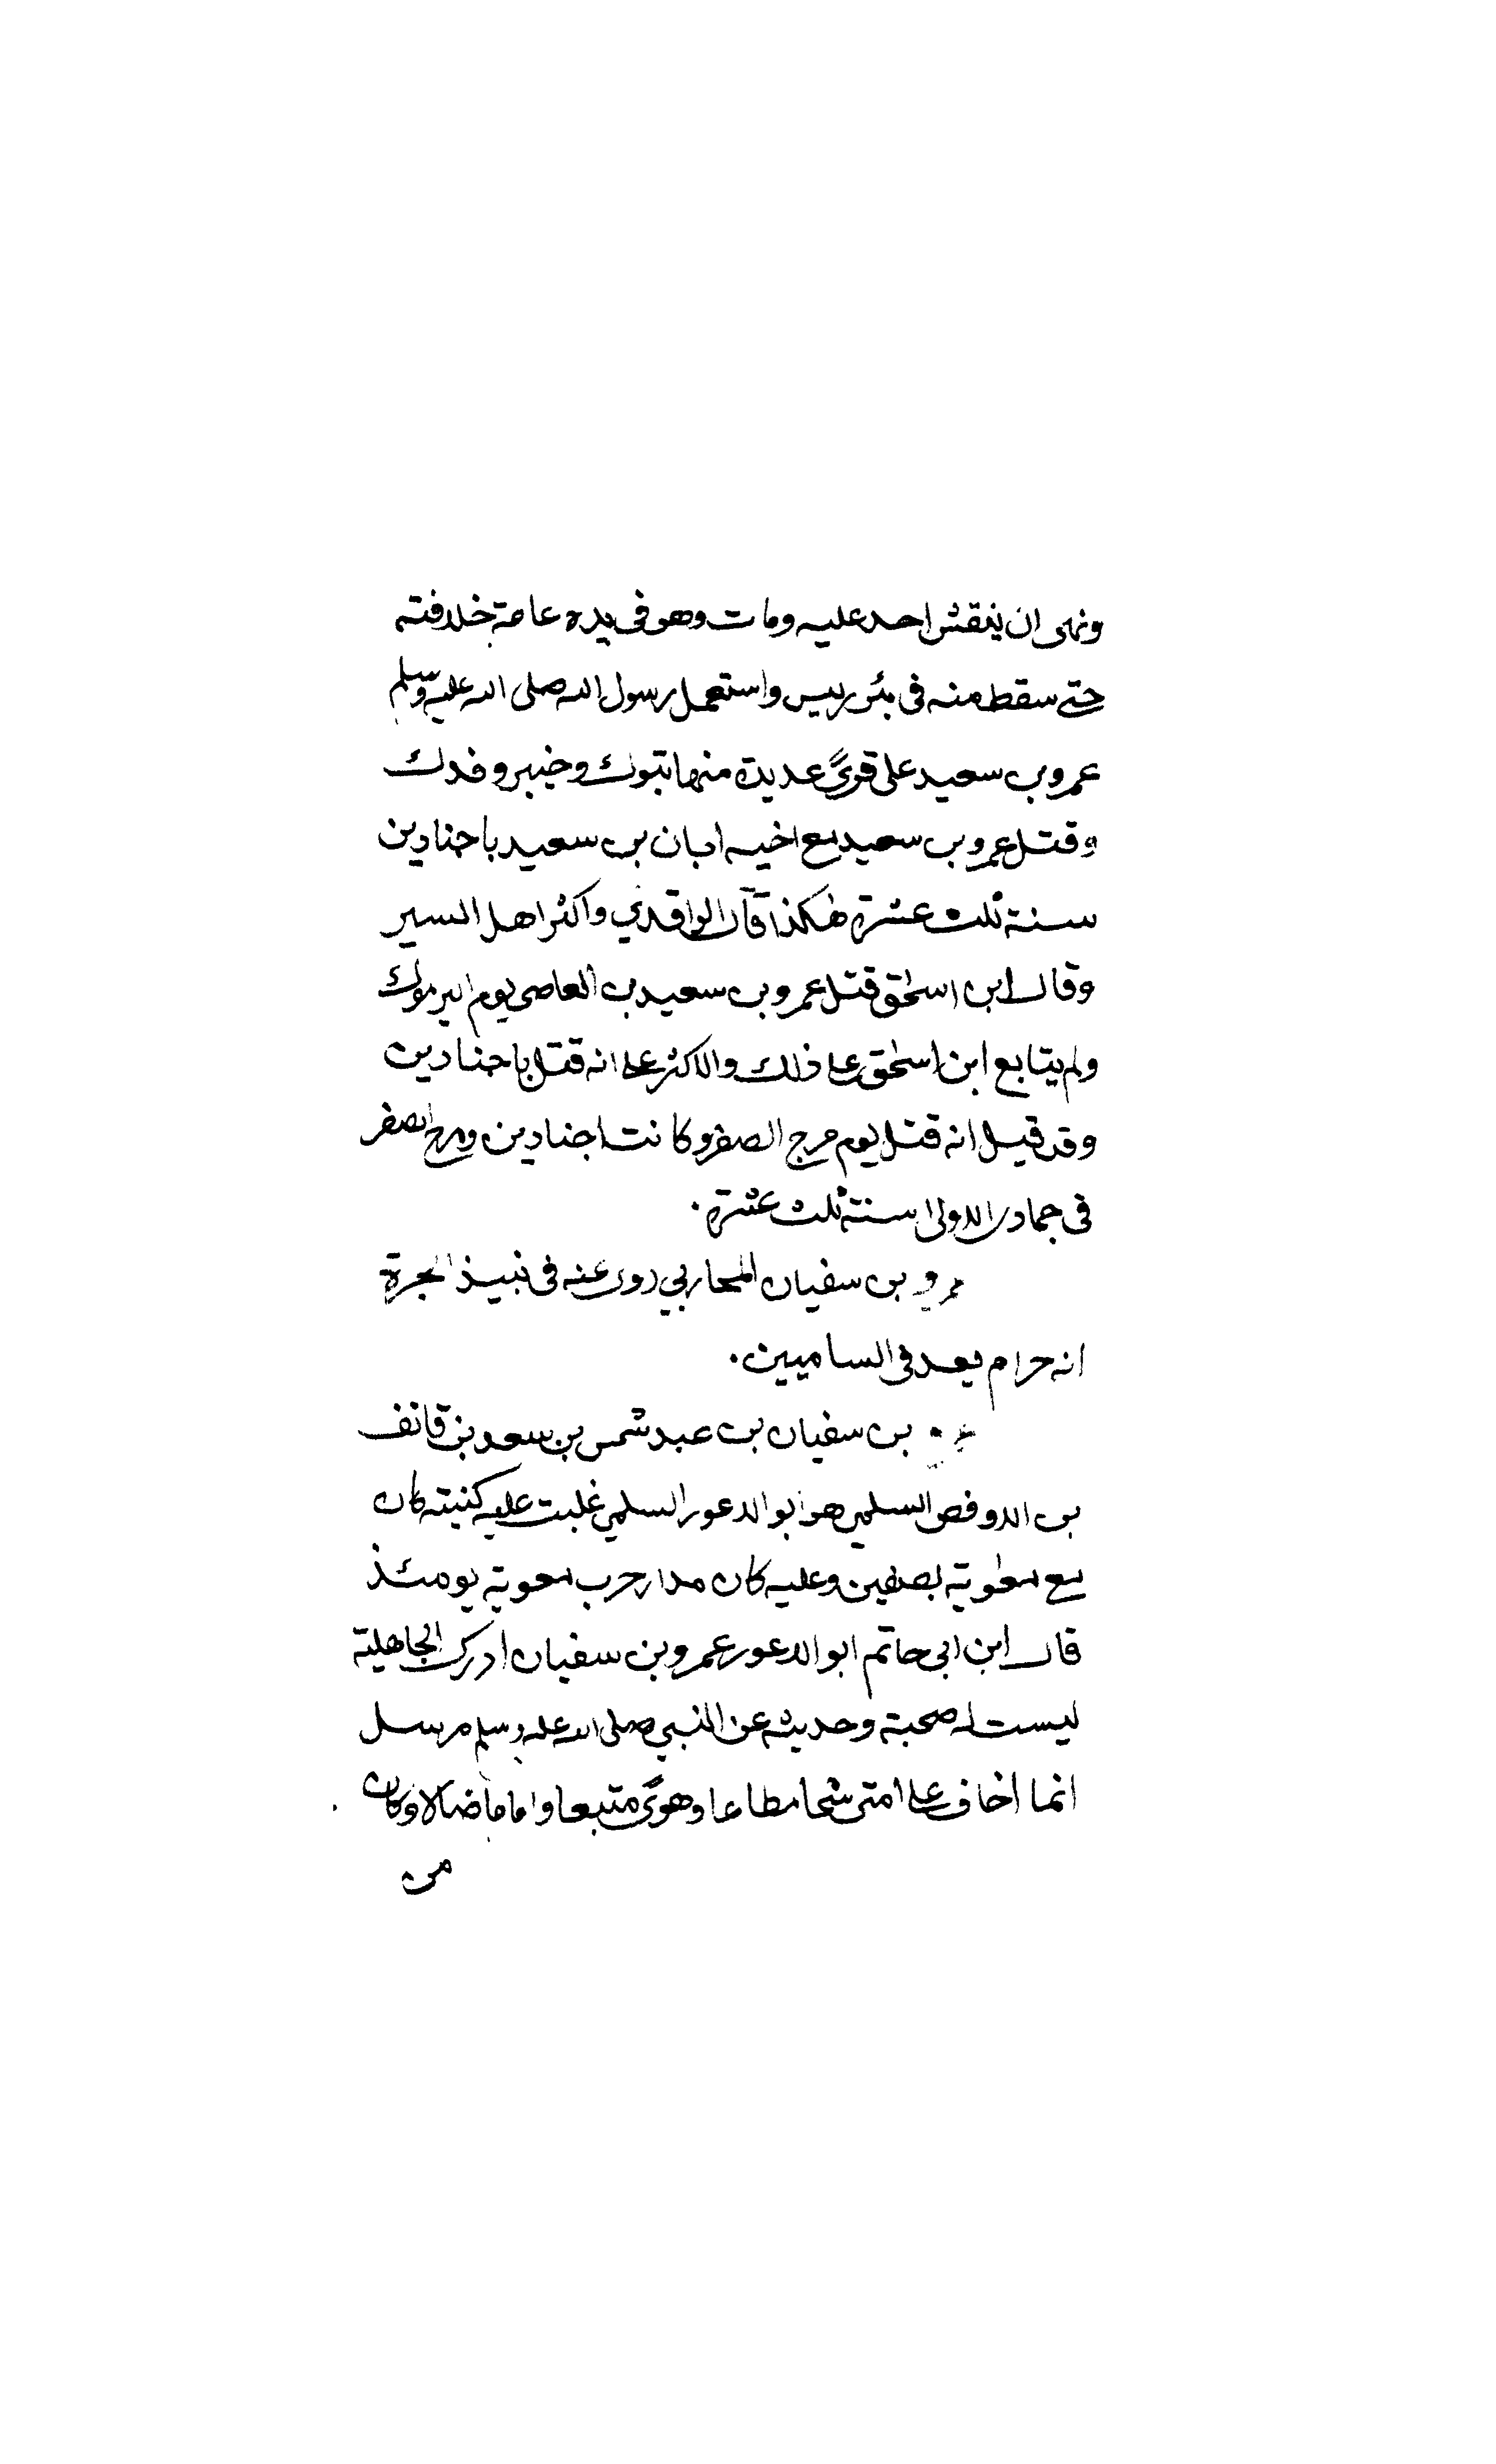 ونهى ان ينقش احد عليه ومات وهو في يده عامة خلافته
حتى سقط منه في بئر ريس واستعمل رسول الله صلى الله عليه وسلم
عمرو بن سعيد على قرىً عديدة منها تبوك وخيبر وفدك
وقتل عمرو بن سعيد مع اخيه ابان بن سعيد باجنادين
سنة ثلث عشرة هكذا قال الواقدي واكثر اهل السير
وقال ابن اسحق قتل عمرو بن سعيد بن العاصي يوم اليرموك
ولم يتابع ابن اسحق على ذلك والاكثر على انه قتل باجنادين
وقد قيل انه قتل يوم مرج الصفر وكانت اجنادين ومرج الصفر
في جمادى الاولى سنة ثلث عشرة .
عمرو بن سفيان المحاربي روى عنه في نبيذ الجرة
انه حرام يعد في الساميين .
بن سفيان بن عبد شمس بن سعد بن قانف
بن الاوقص السلمي هو ابو الاعور السلمي غلبت عليه كنيته كان
مع معوية بصفين وعليه كان مدار حرب معوية يومئذ
قال ابن ابي حاتم ابو الاعور عمرو بن سفيان ادرك الجاهلية
ليست له صحبة وحديثه عن النبي صلى الله عليه وسلم مرسل
انما اخاف على امتى شحا مطاعا وهوىً متبعا واماما ضالا وكان
من